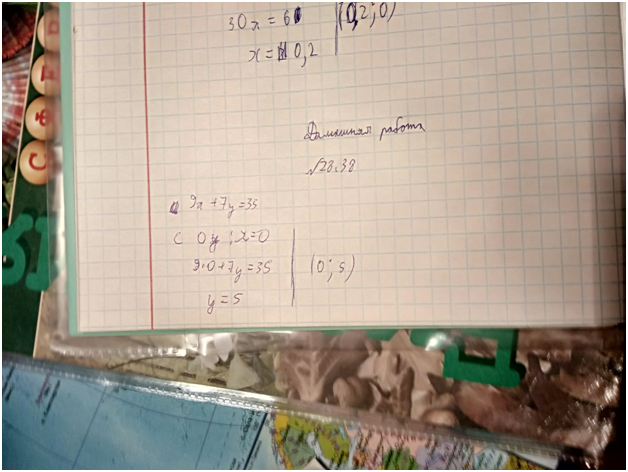 30x = 6
(0,2; 0)
x = 0,2
Домашняя работа
№28.38
9x + 7y = 35
С Oy; x=0
9·0+7y=35
(0; 5)
y = 5